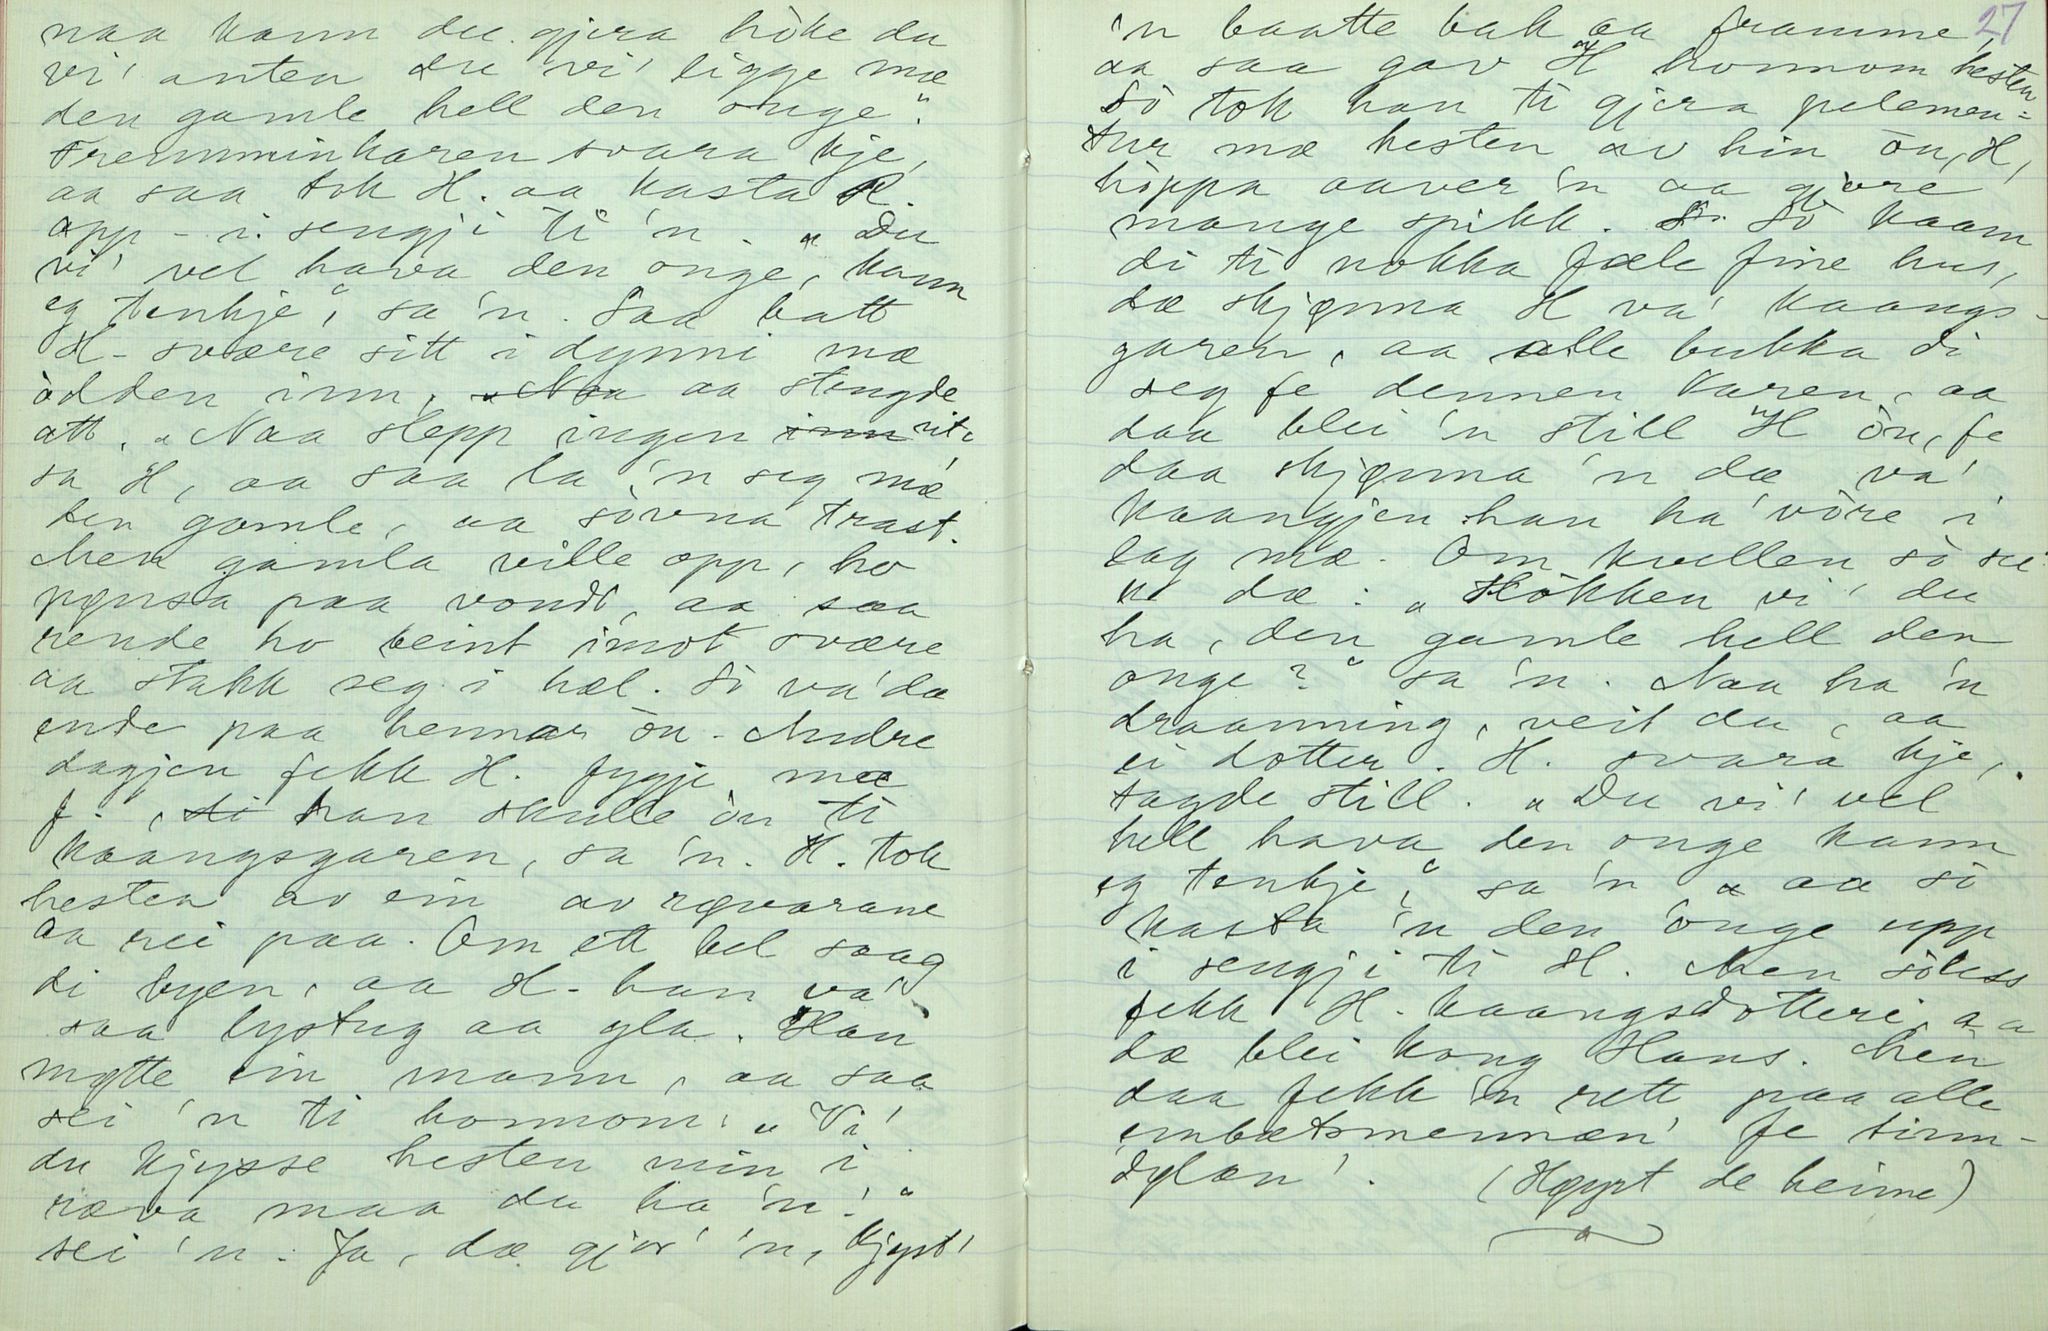 naa kann du gjera höke du
vi' anten du vi' ligge mæ
den gamle hell den onge".
Fremminkaren svara kje,
aa saa tok H. aa kasta R.
opp i sengji ti 'n. „Du
vi' vel hava den onge, kann
eg tenkje", sa 'n. Saa batt
H. svære sitt i dynni mæ
òdden inn, aa stengde
att. „Naa slepp ingen inn ut",
sa H, aa saa la 'n seg mæ
den gamle, aa sòvna trast.
Men gamla ville opp, ho
pønsa paa vondt, aa saa
rende ho beint imot svære
aa stakk seg i hæl. Sò va' dæ
ende paa hennar òu. Andre
dagjen fekk H. fygje mæ
f. , di han skulle òu ti
kaangsgaren, sa 'n. H. tok
hesten av ein av røvarane
aa rei paa. Om ett bel saag
di byen, aa H. han va'
saa lystug aa gla. Han
møtte ein mann, aa saa
sei 'n ti honnom: „Vi'
du kjysse hesten min i
ræva maa du ha 'n!"
sei 'n. Ja, dæ gjor' 'n, kjyst'
27
'n baatte bak aa framme,
aa saa gav H honnom hesten
Sò tok han ti gjera pelemen-
tur mæ hesten av hin òu, H,
hòppa aaver 'n aa gjore
mange spikk. Sò kaam
di ti nokka fæle fine hus,
dæ skjønna H va' kaangs-
garen, aa alle bukka di
seg fe dennen karen, aa
daa blei 'n still H òu, fe
daa skjønna 'n dæ va'
kaangjen han ha' vòre i
lag mæ. Om kvellen sò sei
'n dæ: „Hòkken vi' du
ha, den gamle hell den
onge?" sa 'n. Naa ha 'n
draanning, veit du, aa
ei dotter. H. svara kje,
tagde still. „Du vi' vel
hell hava den onge kann
eg tenkje", sa 'n aa sò
kasta 'n den onge upp
i sengji ti H. Men sòless
fekk H. kaangsdotteri, aa
dæ blei kong Hans. Men
daa fekk 'n rett paa alle
embætsmennæn' fe tinn-
dølan'. (Høyrt de heime)